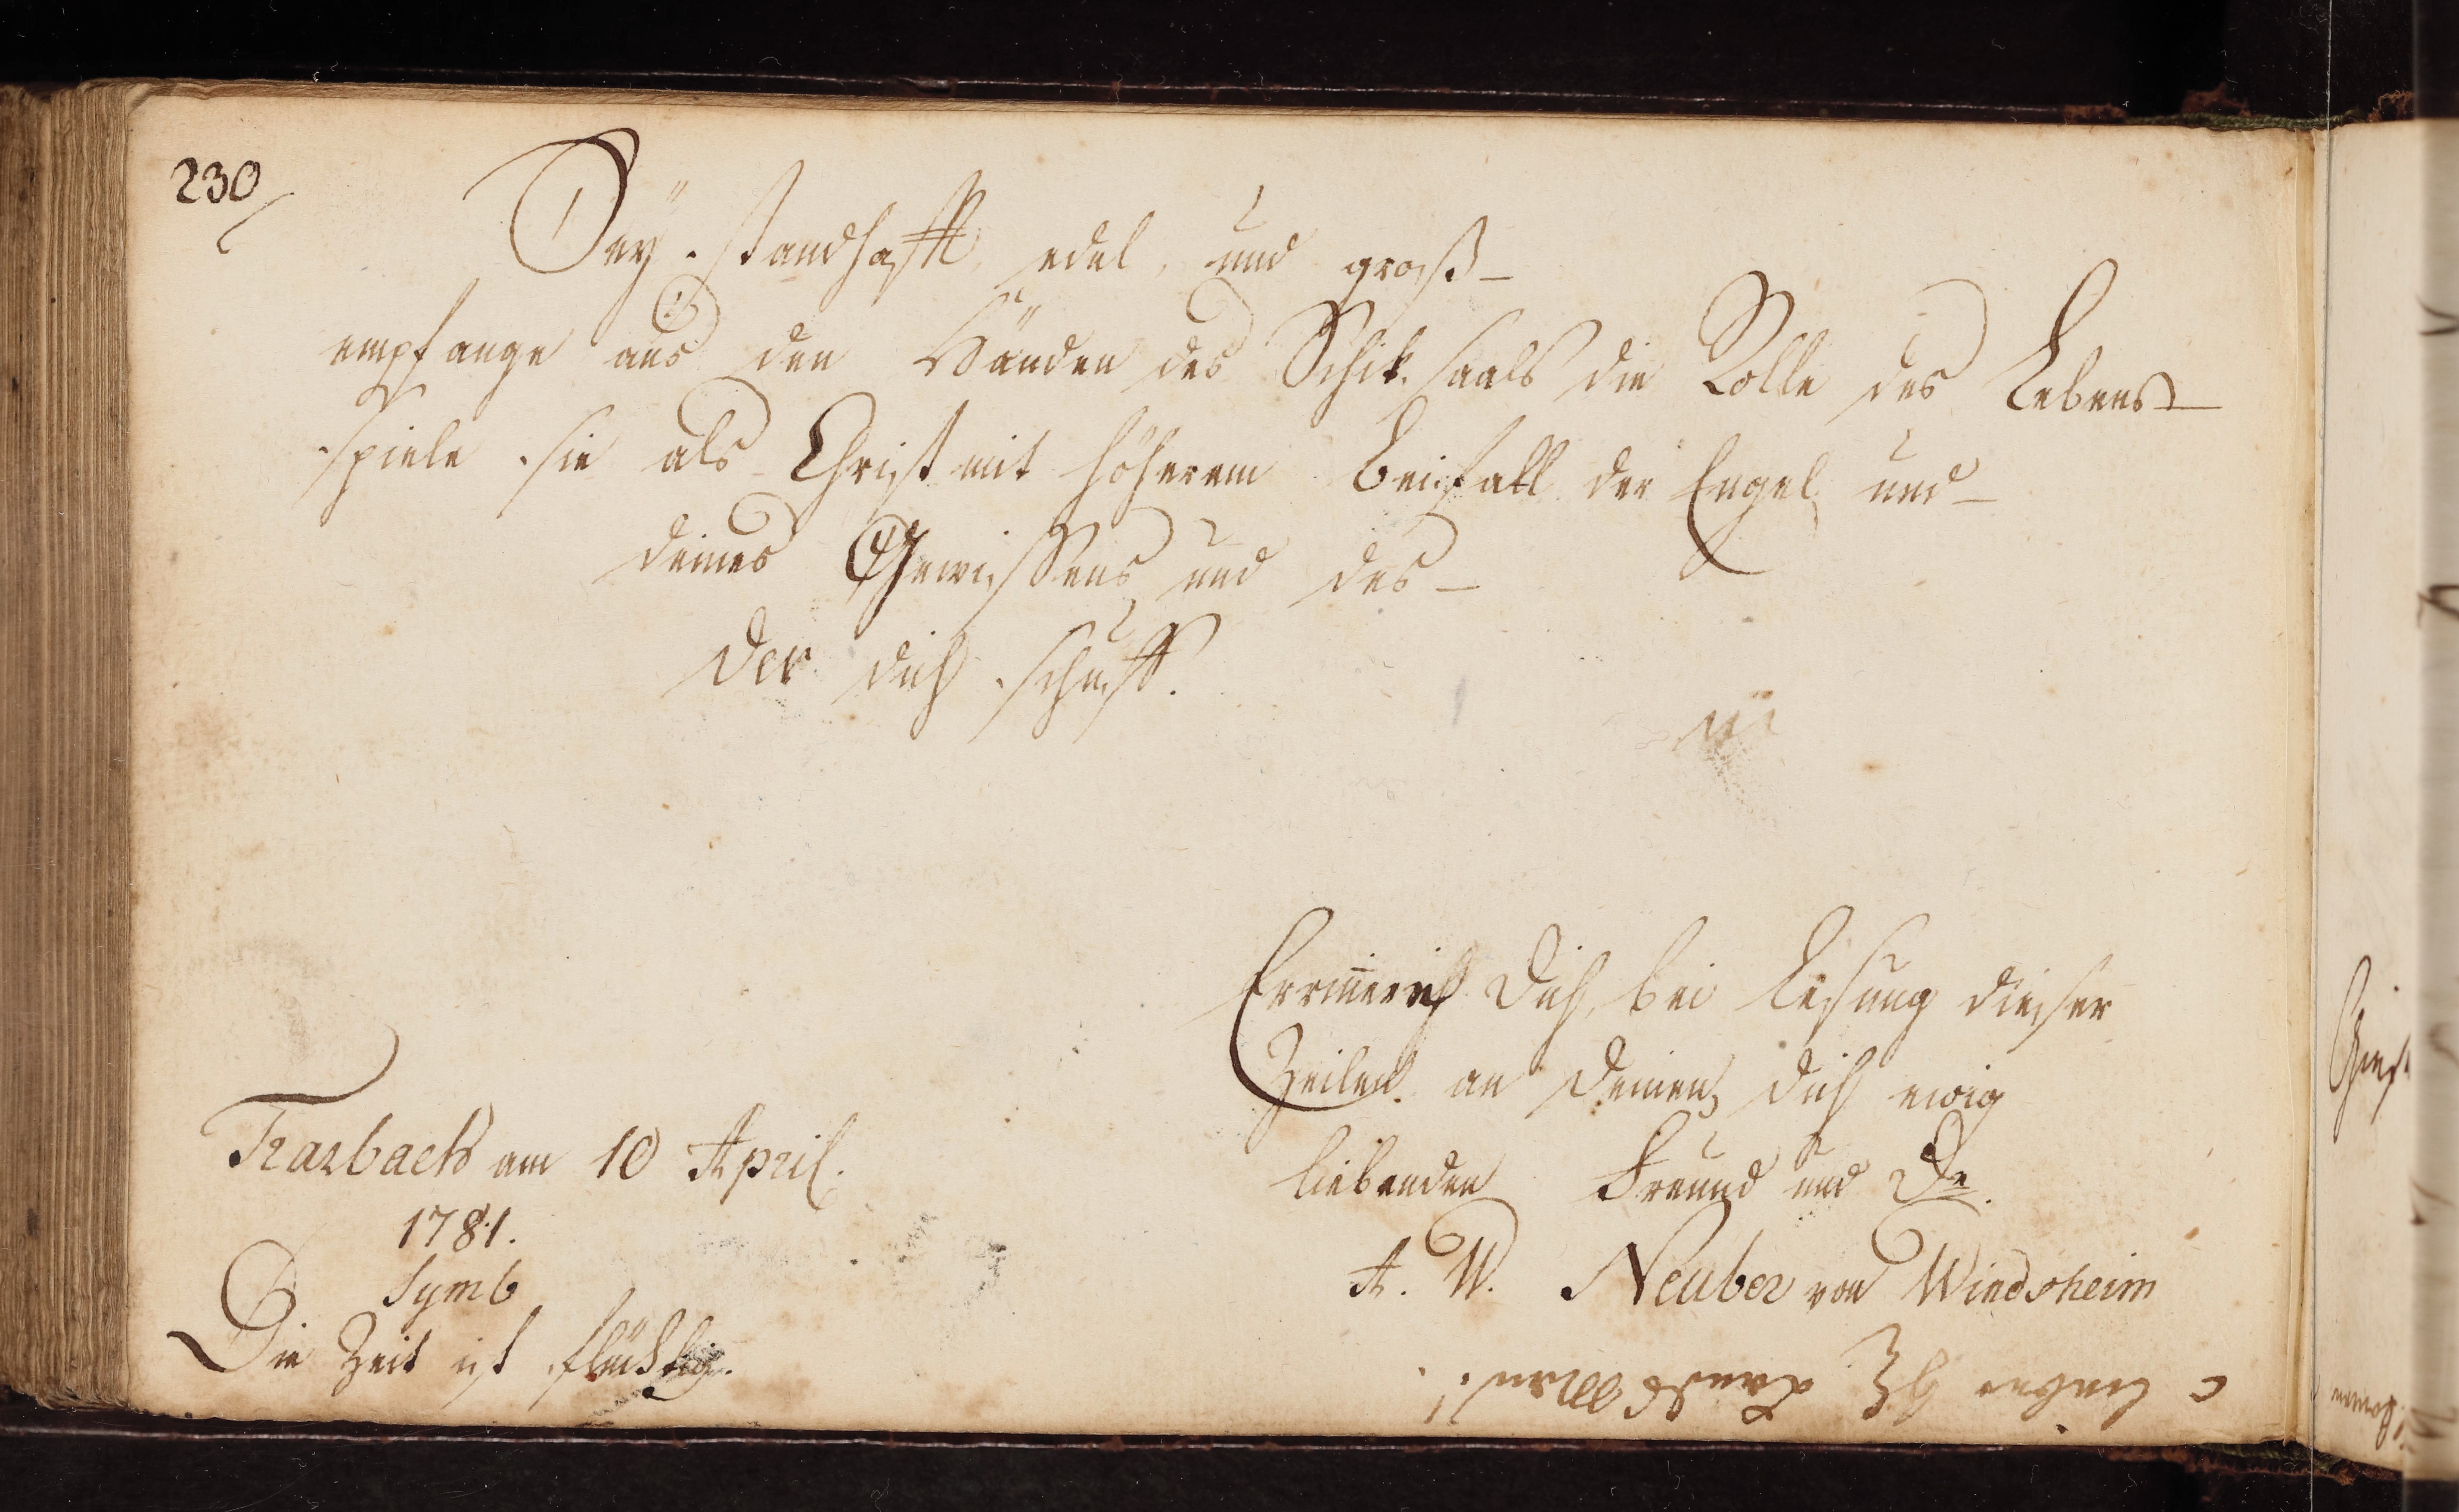 230/
Sey standhafft, edel, und groß –
empfange aus den Händen des Schiksaals die Rolle des Lebens –
spiele sie als Christ mit höherem Beifall der Engel und –
deines Gewissens und des –
der dich schuff.
Errinnere Dich, bei Lesung dieser
Zeilen an Deinen Dich ewig
liebenden Freund und Dr.
A. W. Neuber von Windsheim
Trarbach am 10 April.
1781.
Symb
Die Zeit ist flüchtig.